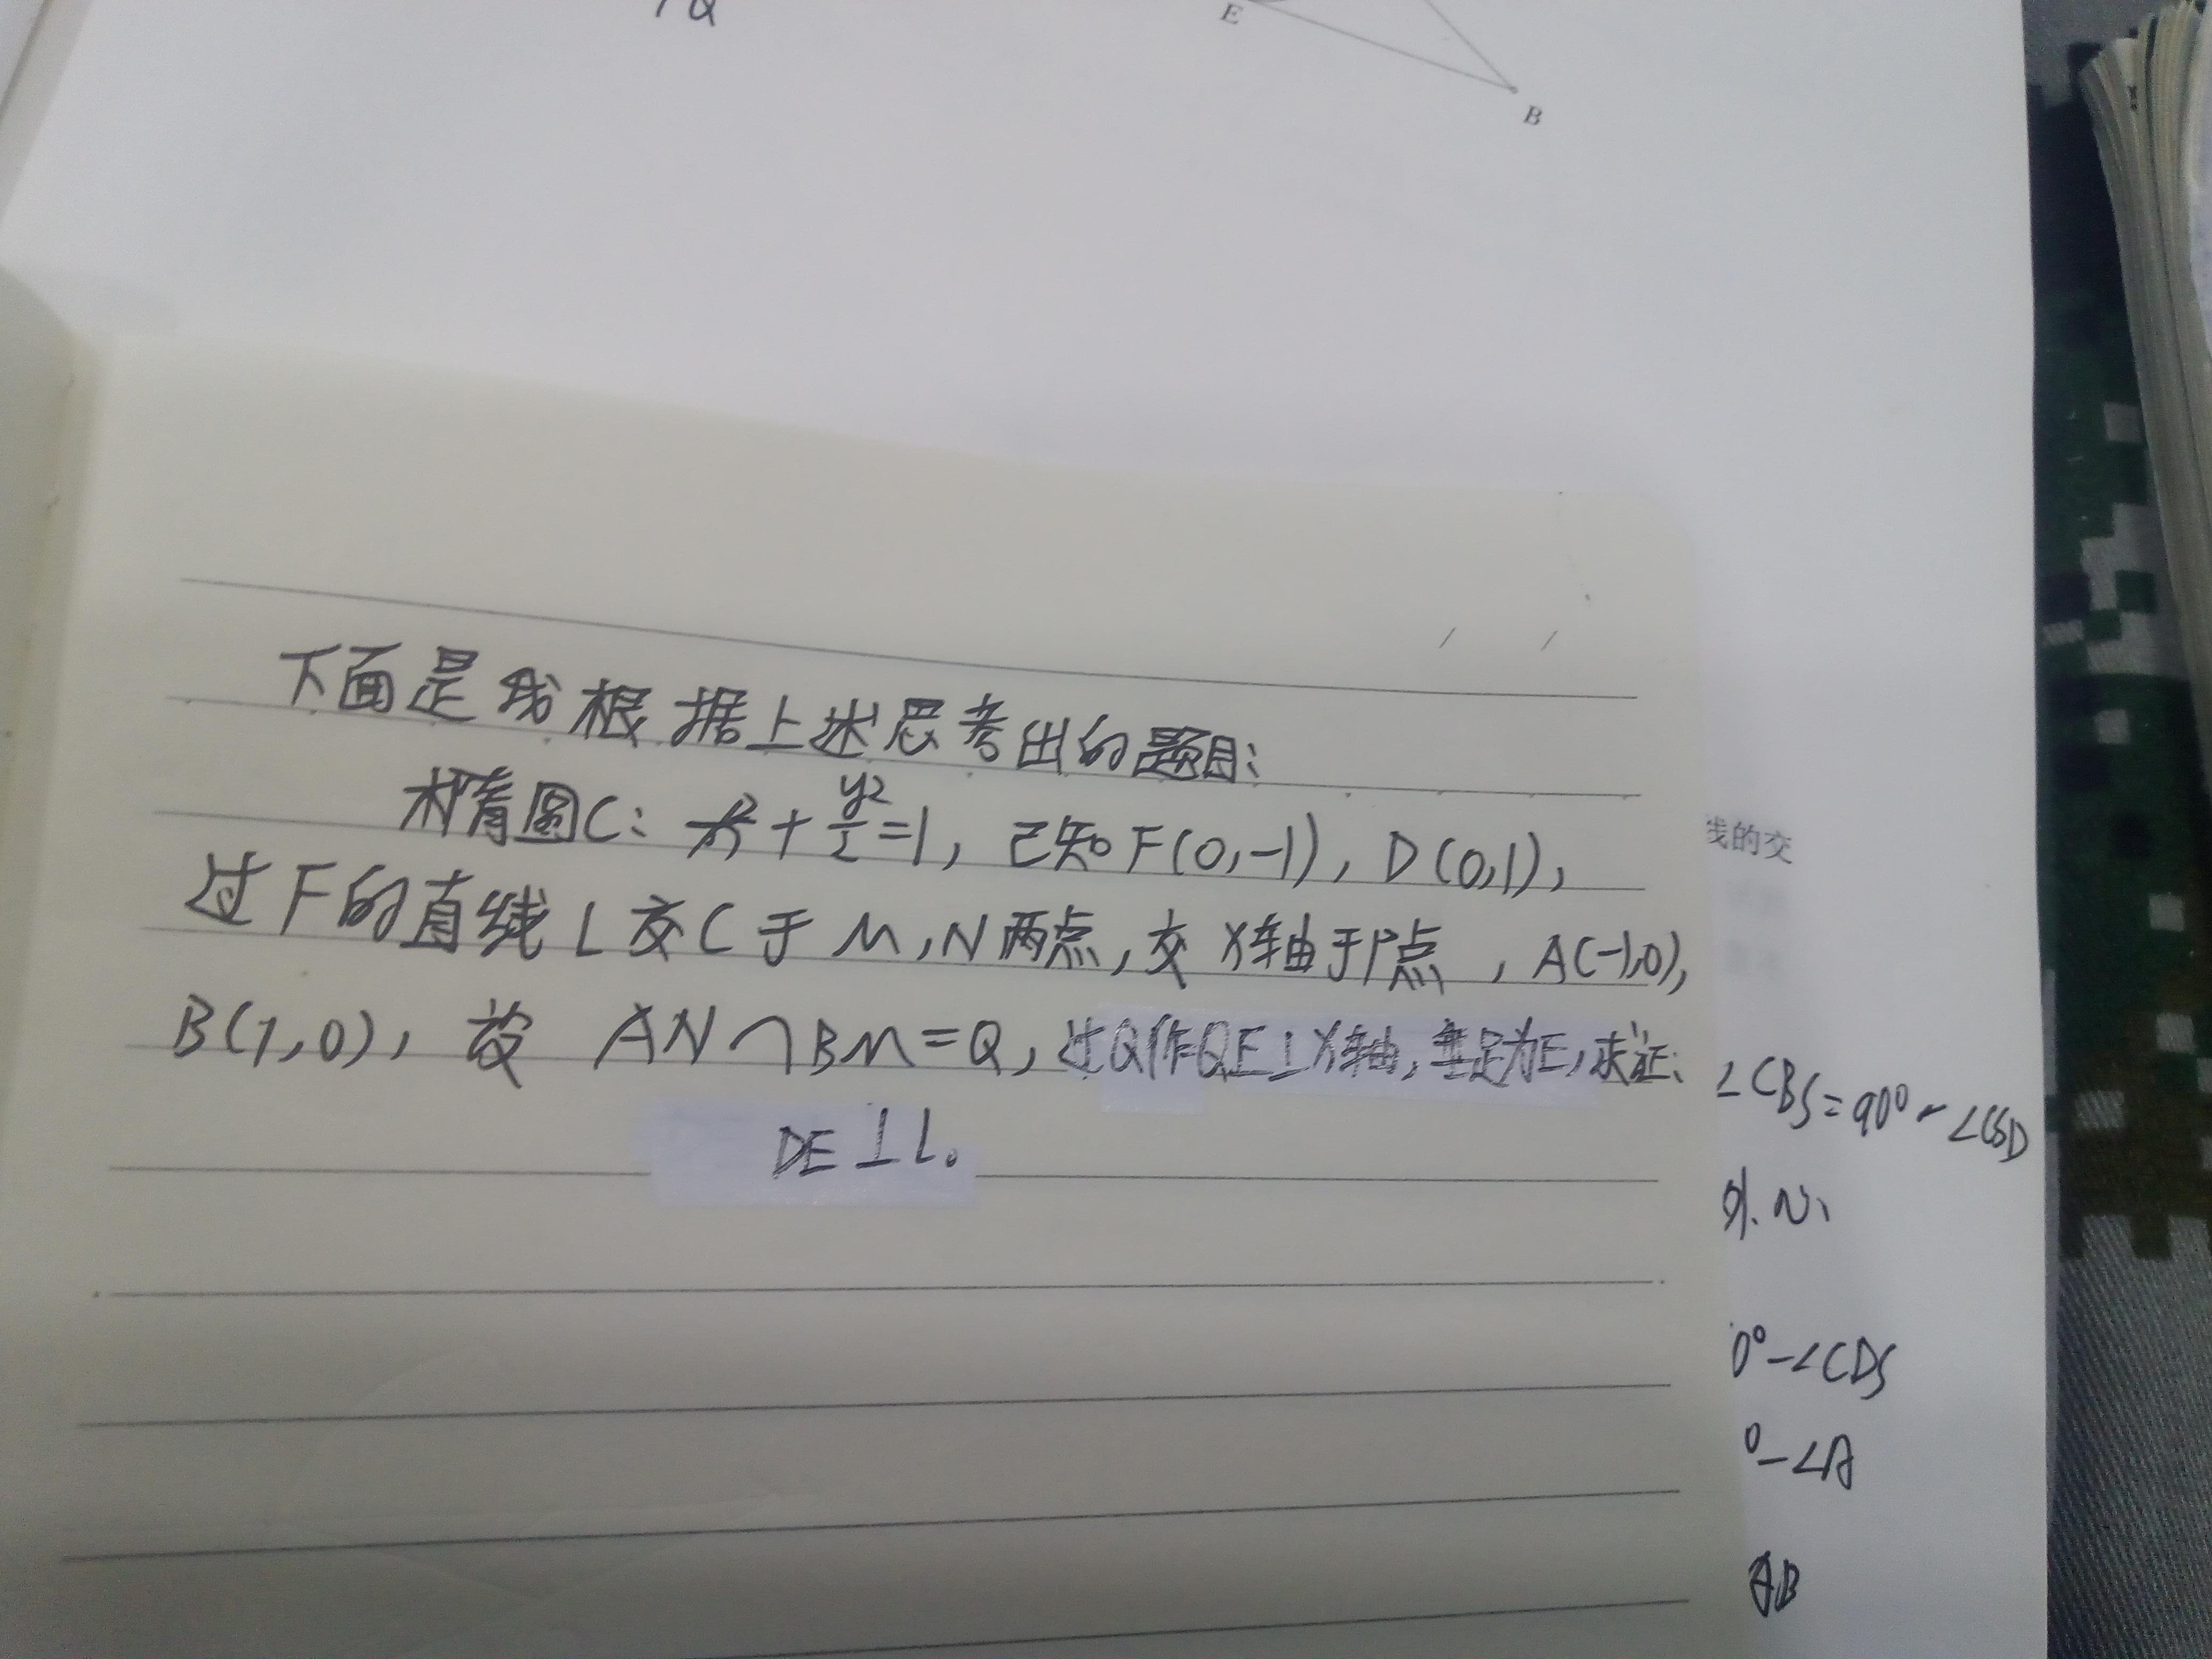 E
B
下面是我根据上述思考出的题目:
椭圆C: x²+y²/2=1, 已知F(0,-1), D(0,1),
线的交
过F的直线L交C于M,N两点,交X轴于P点, A(-1,0),
B(1,0), 设 AN∩BM=Q, 过Q作QE⊥X轴,垂足为E,求证:
DE⊥L。
∠CBS=90°-∠CSD
0°-∠CDS
0-∠A
AB